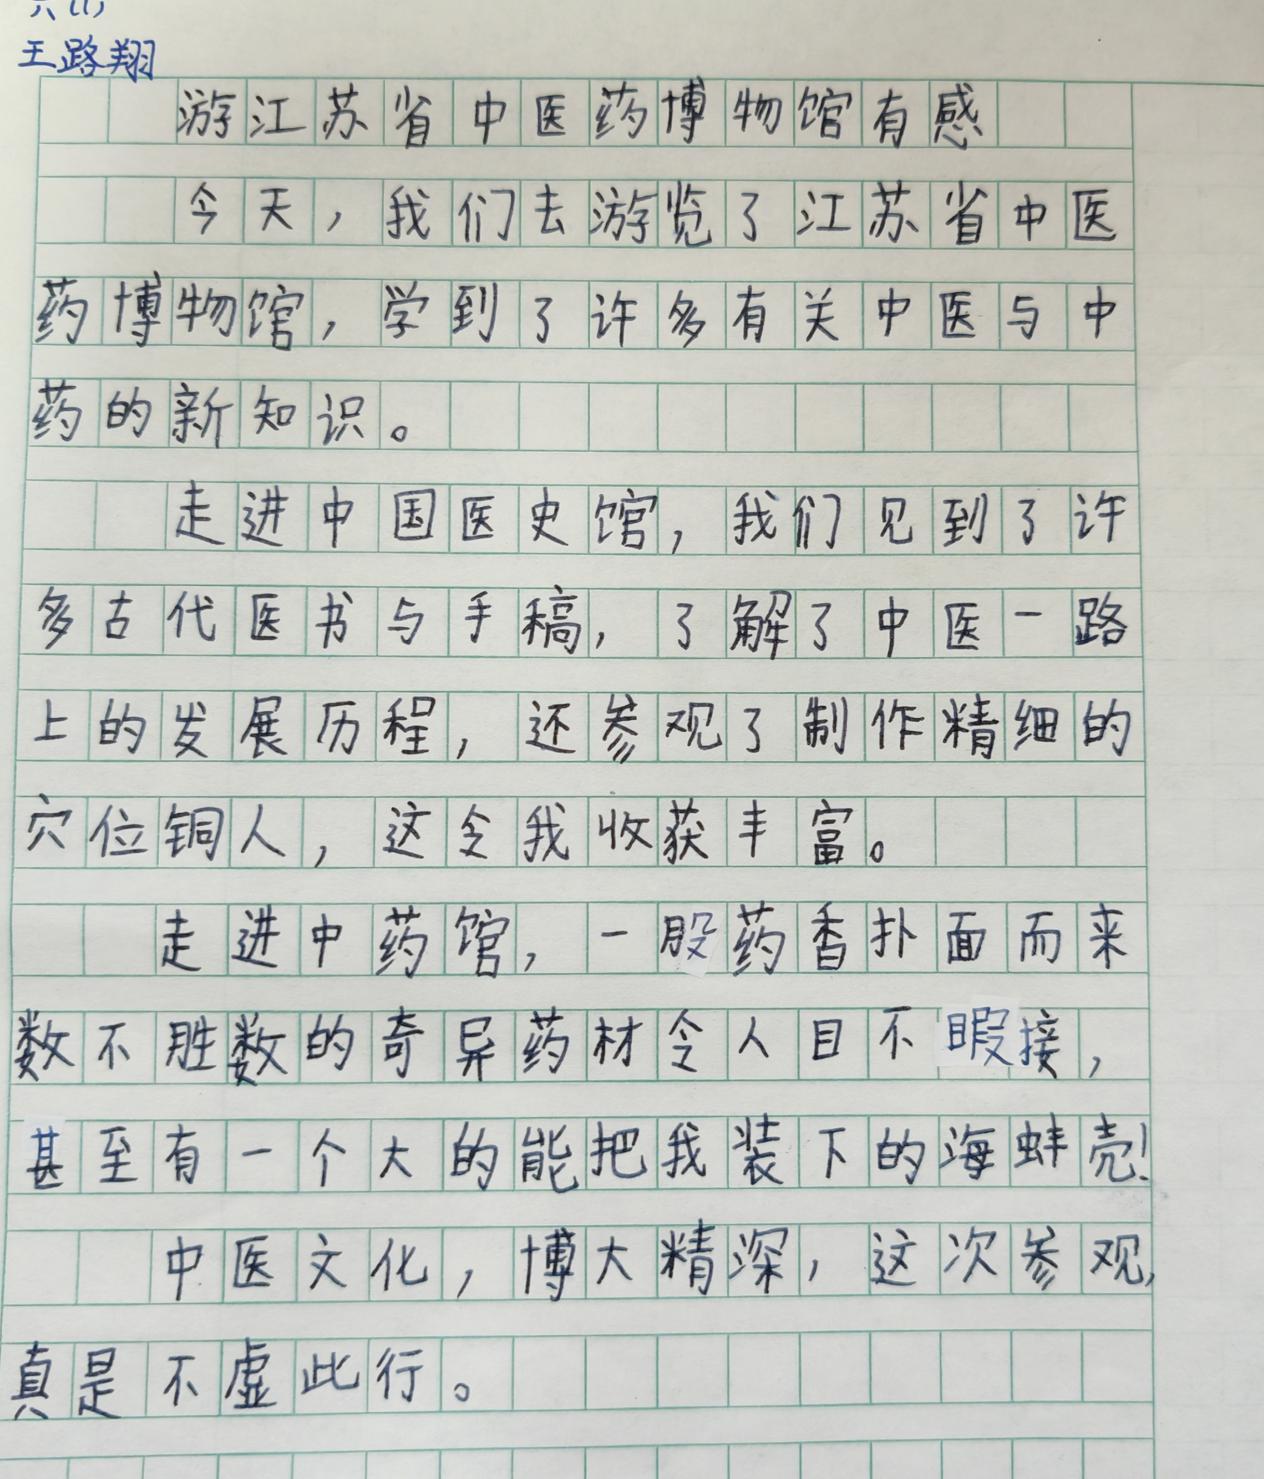 六(1)
王路翔
游江苏省中医药博物馆有感
今天，我们去游览了江苏省中医
药博物馆，学到了许多有关中医与中
药的新知识。
走进中国医史馆，我们见到了许
多古代医书与手稿，了解了中医一路
上的发展历程，还参观了制作精细的
穴位铜人，这令我收获丰富。
走进中药馆，一股药香扑面而来
数不胜数的奇异药材令人目不暇接，
甚至有一个大的能把我装下的海蚌壳!
中医文化，博大精深，这次参观，
真是不虚此行。